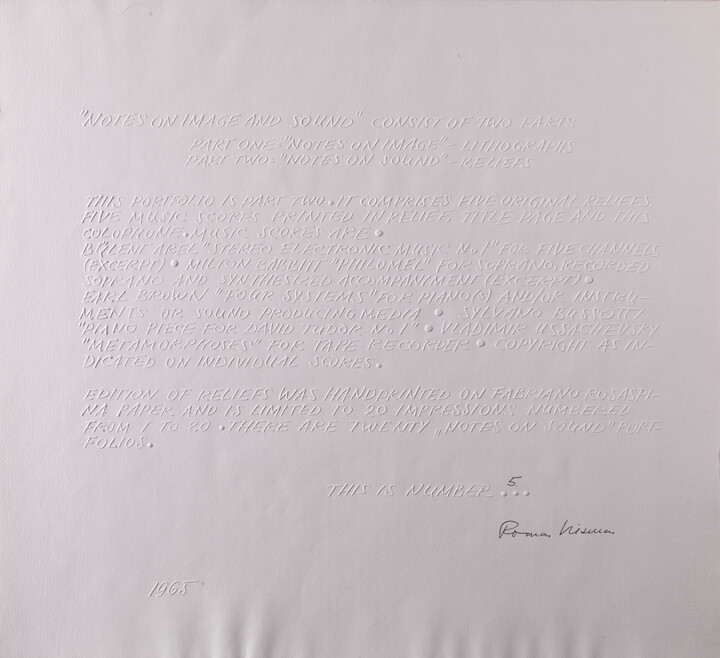 "NOTES ON IMAGE AND SOUND" CONSIST OF TWO PARTS
PART ONE: "NOTES ON IMAGE" - LITHOGRAPHS
PART TWO: "NOTES ON SOUND" - RELIEFS
THIS PORTFOLIO IS PART TWO. IT COMPRISES FIVE ORIGINAL RELIEFS,
FIVE MUSIC SCORES PRINTED IN RELIEF, TITLE PAGE AND THIS
COLOPHONE. MUSIC SCORES ARE •
BÜLENT AREL "STEREO ELECTRONIC MUSIC No.1" FOR FIVE CHANNELS
(EXCERPT) • MILTON BABBITT "PHILOMEL" FOR SOPRANO, RECORDED
SOPRANO AND SYNTHESIZED ACCOMPANIMENT (EXCERPT) •
EARL BROWN "FOUR SYSTEMS" FOR PIANO(S) AND/OR INSTRU-
MENTS OR SOUND PRODUCING MEDIA • SYLVANO BUSSOTTI
"PIANO PIECE FOR DAVID TUDOR No.1" • VLADIMIR USSACHEVSKY
"METAMORPHOSES" FOR TAPE RECORDER • COPYRIGHT AS IN-
DICATED ON INDIVIDUAL SCORES.
EDITION OF RELIEFS WAS HANDPRINTED ON FABRIANO ROSASPI-
NA PAPER AND IS LIMITED TO 20 IMPRESSIONS NUMBERED
FROM 1 TO 20. THERE ARE TWENTY „NOTES ON SOUND" PORT-
FOLIOS.
THIS IS NUMBER 5...
Roman
1965